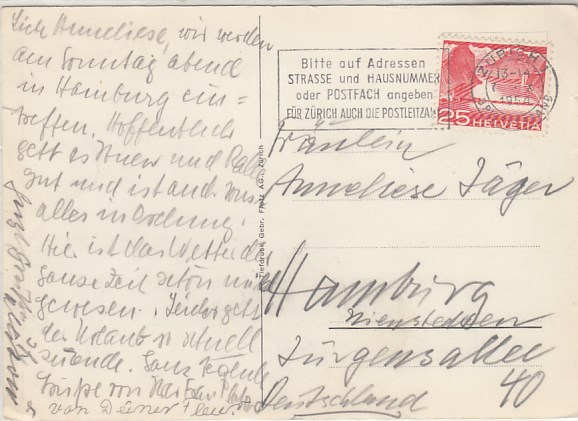 Liebe Anneliese, wir werden
am Sonntag abend
in Hamburg ein=
treffen. Hoffentlich
geht es Ihnen und
gut und ist auch
alles in Ordnung.
Hier ist das Wetter die
ganze Zeit schön
gewesen. Leider geht
der Urlaub so schnell
zuende. Ganz
Grüße von
von Deiner
Bitte auf Adressen
STRASSE und HAUSNUMMER
oder POSTFACH angeben
FÜR ZÜRICH AUCH DIE POSTLEITZAHL
ZÜRICH
25 HELVETIA
Tiefdruck Gebr. Fretz AG., Zürich
Fräulein
Anneliese Jäger
Hamburg
Nienstedten
Jürgensallee
40
Deutschland